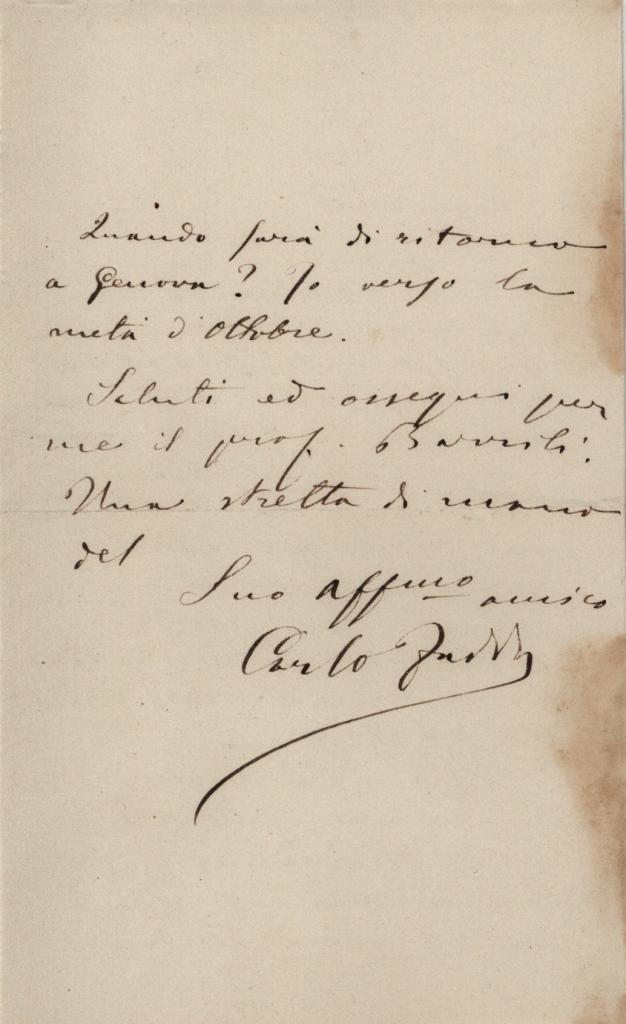 Quando sarà di ritorno
a Genova? Io verso la
metà d'Ottobre.
Saluti ed ossequi per
me il prof. Barrili.
Una stretta di mano
del
Suo affmo amico
Carlo